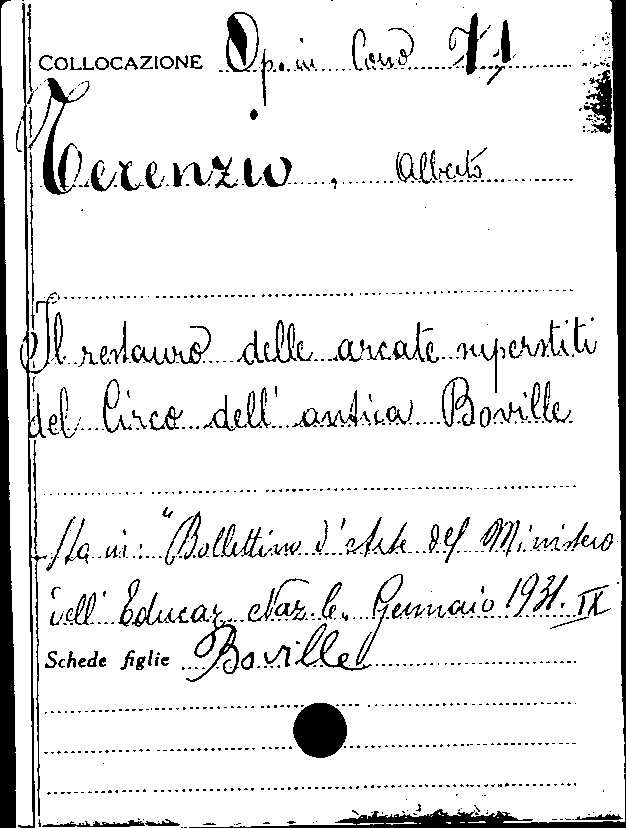 COLLOCAZIONE Op. in Cons T 1
Terenzio, Alberto
Il restauro delle arcate superstiti
del Circo dell' antica Boville
Sta in: "Bollettino d'Arte del Ministero
dell' Educaz. Naz.le. Gennaio 1931. IX
Schede figlie Boville